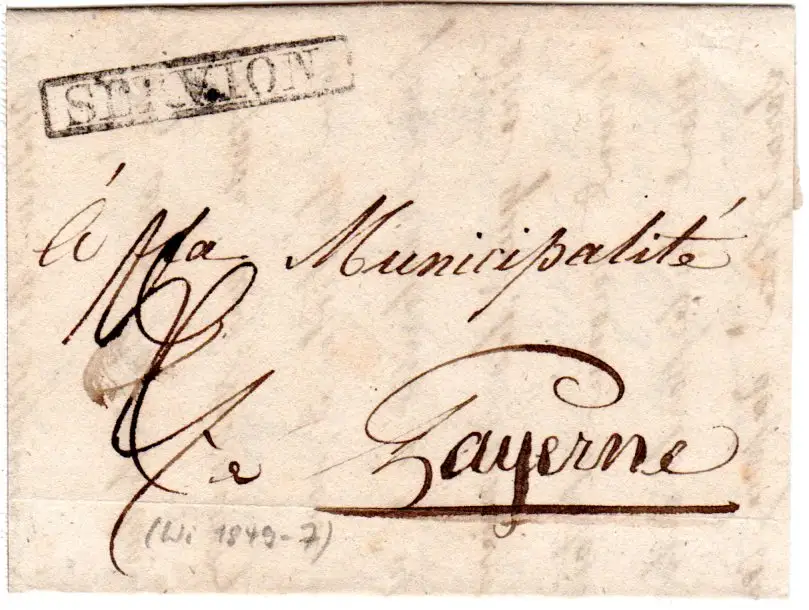 SERVION
à la Municipalité
de Payerne
(Wi 1849-7)